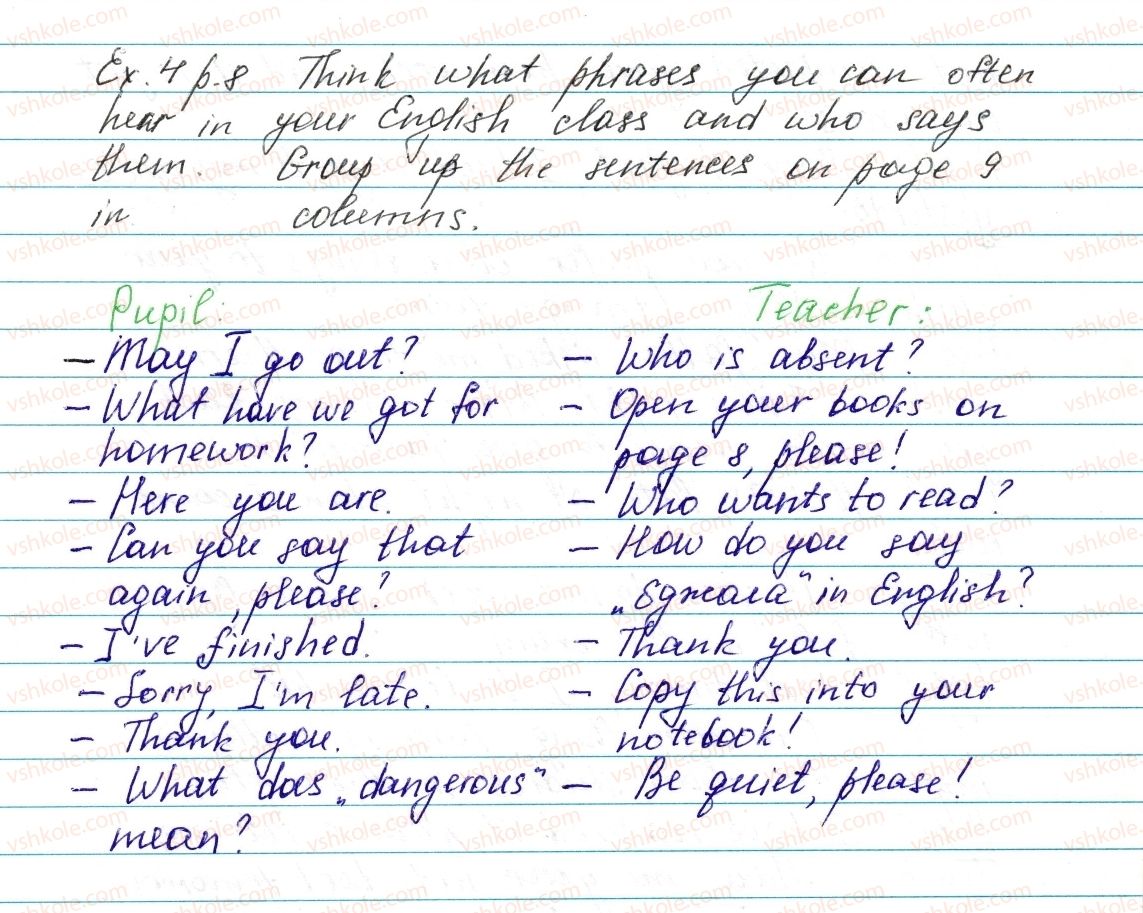 Ex. 4 p. 8 Think what phrases you can often
hear in your English class and who says
them. Group up the sentences on page 9
in columns.
Pupil:
Teacher:
– May I go out?
– What have we got for
homework?
– Here you are.
– Can you say that
again, please?
– I've finished.
– Sorry, I'm late.
– Thank you.
– What does „dangerous“
mean?
– Who is absent?
– Open your books on
page 8, please!
– Who wants to read?
– How do you say
„бджола“ in English?
– Thank you.
– Copy this into your
notebook!
– Be quiet, please!